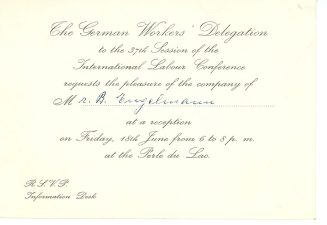 The German Workers' Delegation
to the 37th Session of the
International Labour Conference
requests the pleasure of the company of
Mr. B. Engelmann
at a reception
on Friday, 18th June from 6 to 8 p. m.
at the Perle du Lac.
R.S.V.P.
Information Desk